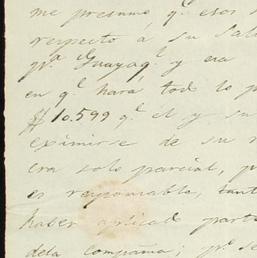 me presumo q.e esos
respecto á su Sal
p.a Guayaq.l y era
en q.e hará tod lo p
$ 10.599 q.e él y su
eximirse de su r
era solo parcial, p
es responsable, tant
haber aplicad parte
dela compañia; p.o se